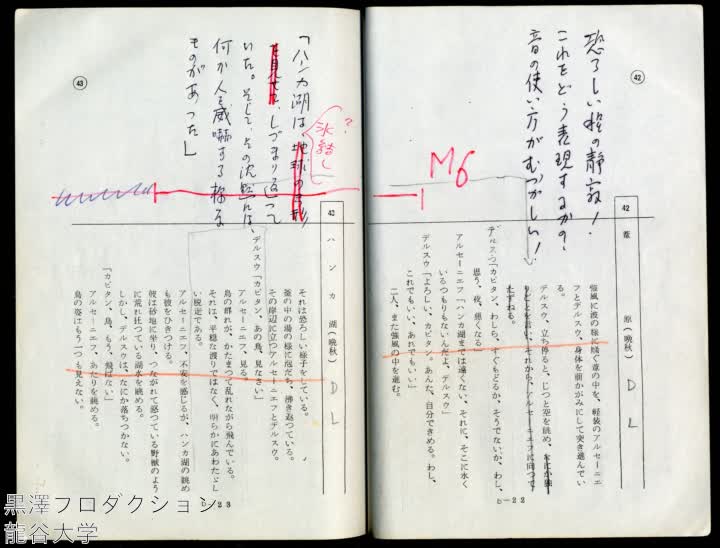 ㊷
恐ろしい程の静寂!
これをどう表現するか?
音の使い方がむづかしい!
M6
42 葦 原(晩秋) D L
強風に波の様に騒ぐ葦の中を、軽装のアルセーニエ
フとデルスウ、身体を前かがみにして突き進んでい
る。
デルスウ、立ち停ると、じつと空を眺め、なにか独
りごとを言い、それから、アルセーニエフに向つて
たずねる。
デルスウ「カピタン、わしら、すぐもどるか、そうでないか、わし、
思う、夜、悪くなる」
アルセーニエフ「ハンカ湖までは遠くない、それに、そこに永く
いるつもりもないんだよ、デルスウ」
デルスウ「よろしい、カピタン。あんた、自分できめる。わし、
これでもいい、あれでもいい」
二人、また強風の中を進む。
D—22
㊸
「ハンカ湖は、地球の
を見せて、しづまり返って
いた。そして、その沈黙には、
何か人を威嚇する様な
ものがあった」
氷結し
?
43 ハ ン カ 湖(晩秋) D L
それは恐ろしい様子をしている。
釜の中の湯の様に泡だち、沸き返つている。
その岸辺に立つアルセーニエフとデルスウ。
デルスウ「カピタン、あの鳥、見なさい」
アルセーニエフ、見る。
鳥の群れが、かたまつて乱れながら飛んでいる。
それは、平穏な渡りではなく、明らかにあわただし
い脱走である。
アルセーニエフ、不安を感じるが、ハンカ湖の眺め
も彼をひきつける。
彼は砂地に坐り、つながれて怒つている野獣のよう
に荒れ狂つている湖水を眺める。
しかし、デルスウは、なにか落ちつかない。
「カピタン、鳥、もう、飛ばない」
アルセーニエフ、あたりを眺める。
鳥の姿はもう一つも見えない。
D—23
黒澤プロダクション
龍谷大学